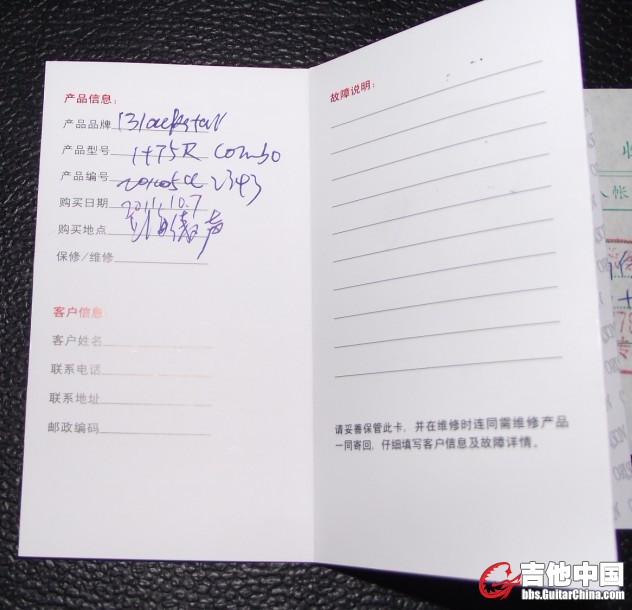 产品信息:
产品品牌 Blackstar
产品型号 HT5R combo
产品编号
购买日期 2011.10.7
购买地点
保修/维修
客户信息:
客户姓名
联系电话
联系地址
邮政编码
故障说明:
请妥善保管此卡，并在维修时连同需维修产品
一同寄回，仔细填写客户信息及故障详情。
吉他中国
bbs.GuitarChina.com